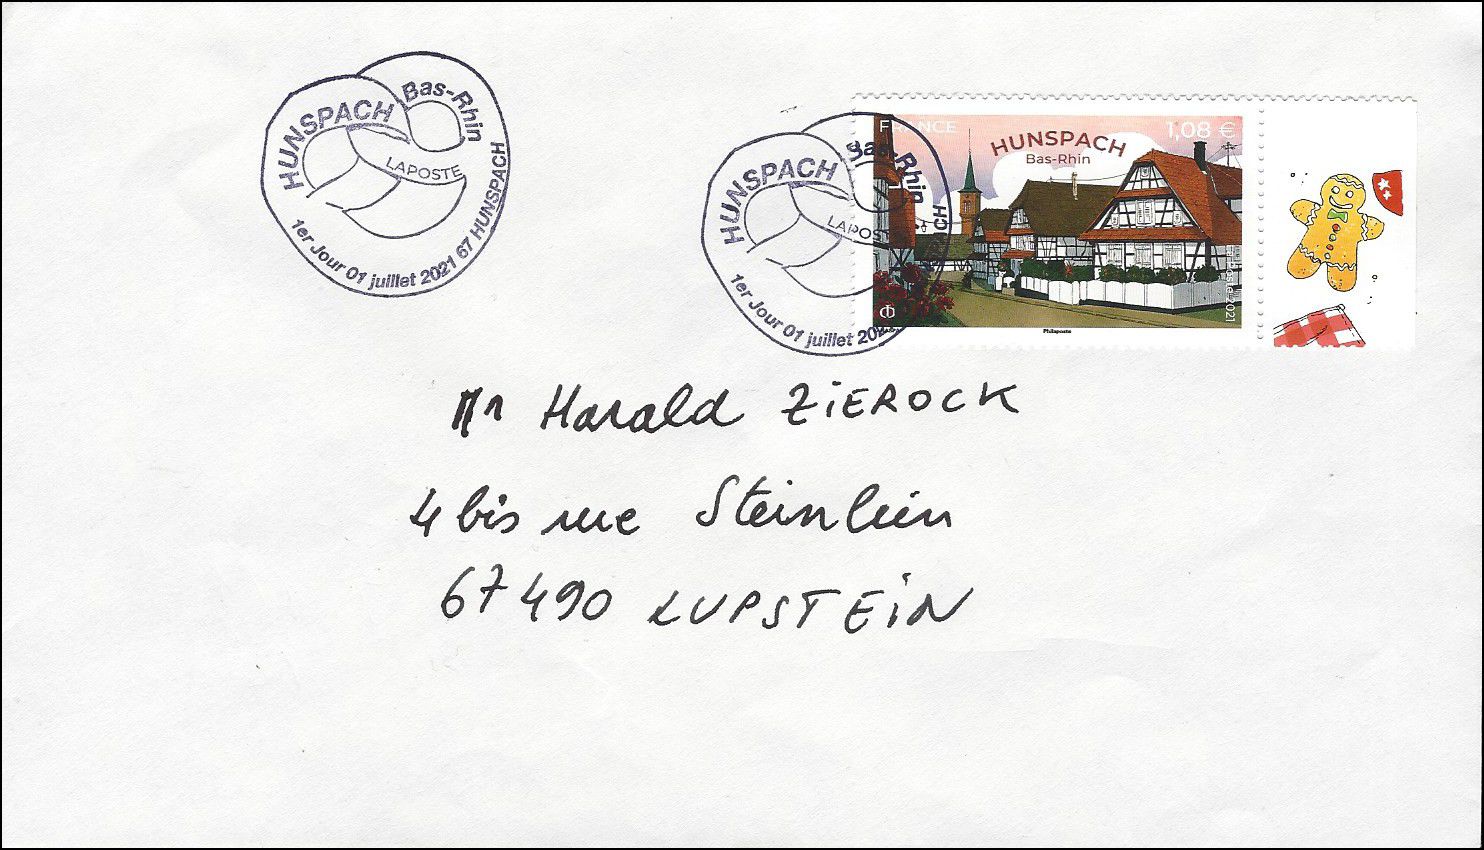 HUNSPACH Bas-Rhin
LAPOSTE
1er Jour 01 juillet 2021 67 HUNSPACH
HUNSPACH Bas-Rhin
LAPOSTE
1er Jour 01 juillet 202 SPACH
FRANCE
1,08 €
HUNSPACH
Bas-Rhin
2021
Philaposte
Mr Harald ZiEROCK
4 bis rue Steinlein
67490 LUPSTEiN